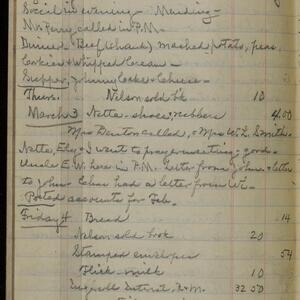 Social in evening - Mending -
Mrs Perry called in P.M.
Dinner - Beef (chunk) mashed potato, peas,
Cookies & Whipped Cream -
Supper, Johnny cakes & Cheese -
Thurs. Nelson sold bk 10
March 3 Netta - shoes, rubbers 4.00
Mrs Denton called, & Mrs W. L. Smith.
Netta, & I went to prayer meeting - good -
Uncle E. W. here in P.M. Letter from John & letter
to John. had a letter from
Posted accounts for Feb.
Friday 4 Bread .14
Nelson sold book 20
Stamped envelopes 54
milk 10
32 50